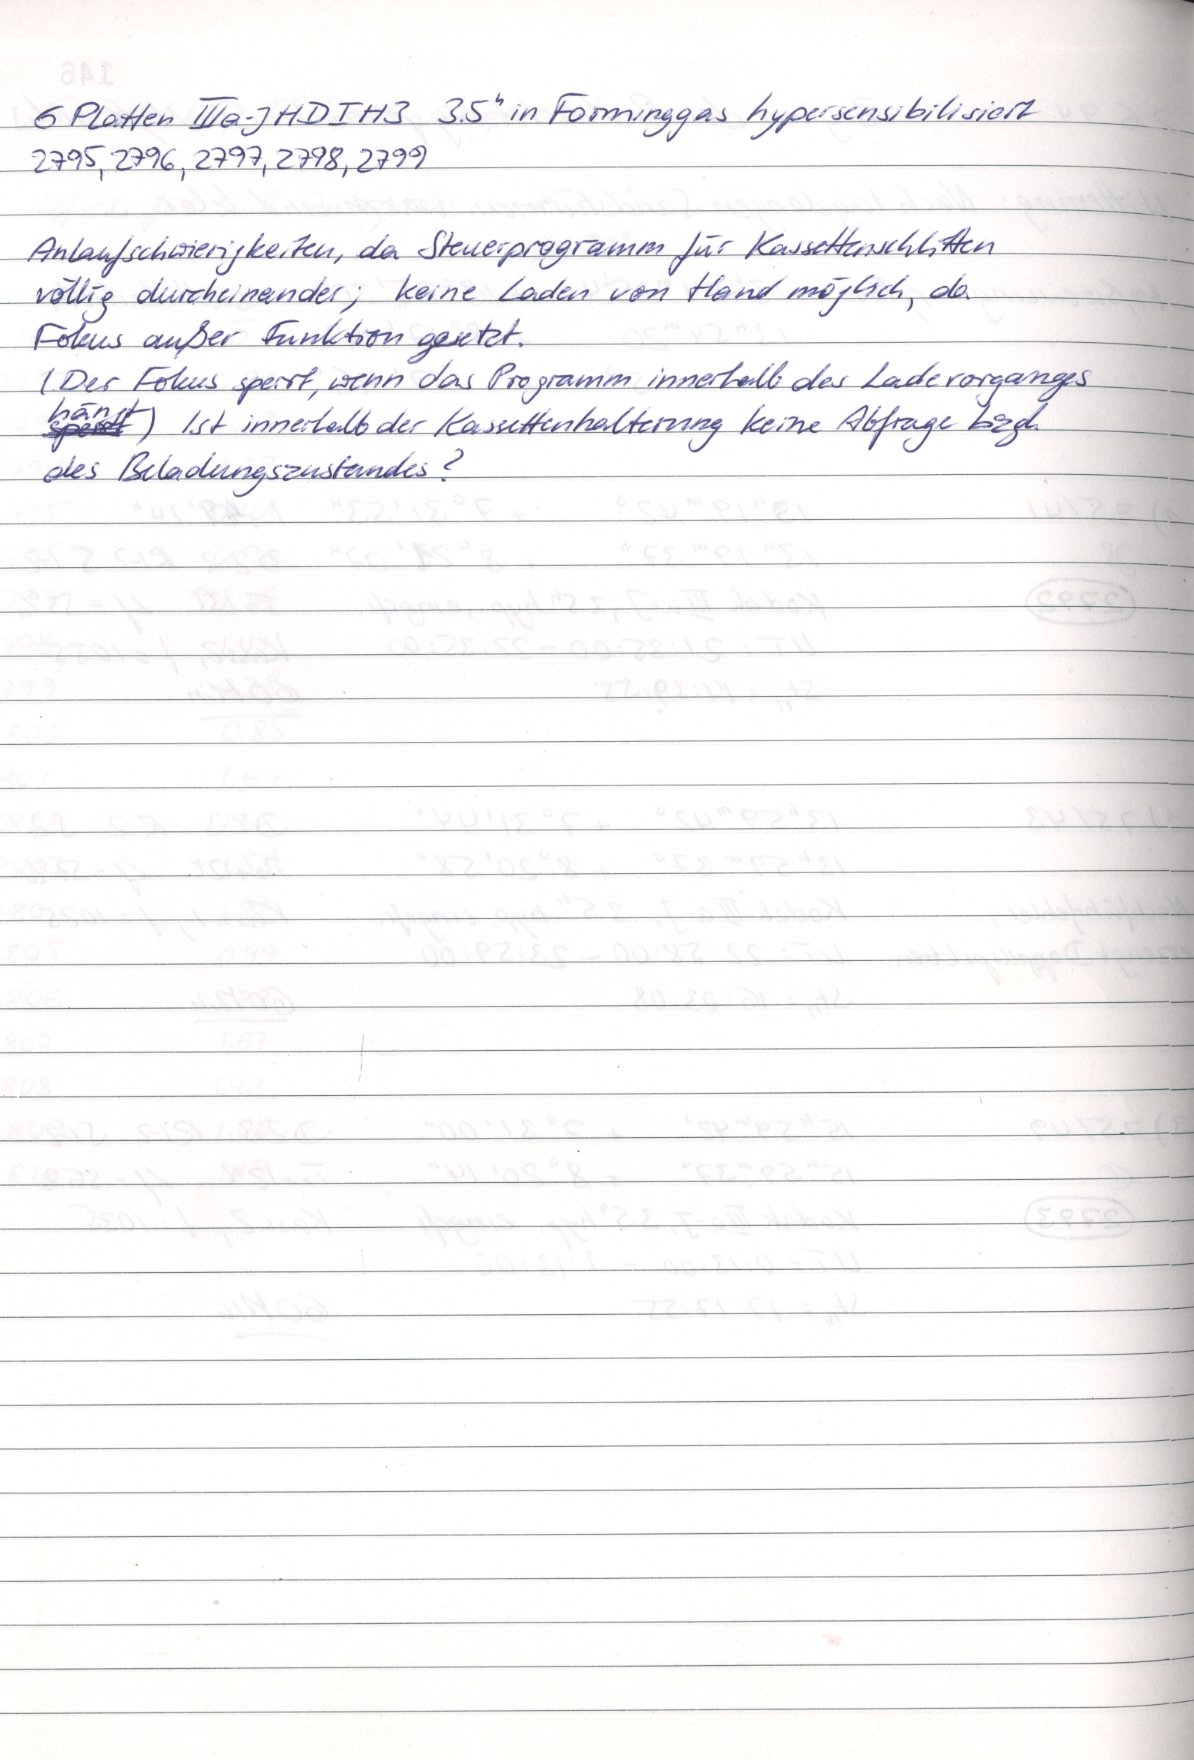 6 Platten IIIa-J HDIH3 3.5ʰ in Forminggas hypersensibilisiert
2795, 2796, 2797, 2798, 2799
Anlaufschwierigkeiten, da Steuerprogramm für Kassettenschlitten
völlig durcheinander; keine Laden von Hand möglich, da
Fokus außer Funktion gesetzt.
(Der Fokus sperrt, wenn das Programm innerhalb des Ladevorganges
hängt) Ist innerhalb der Kassettenhalterung keine Abfrage bzgl.
des Beladungszustandes?